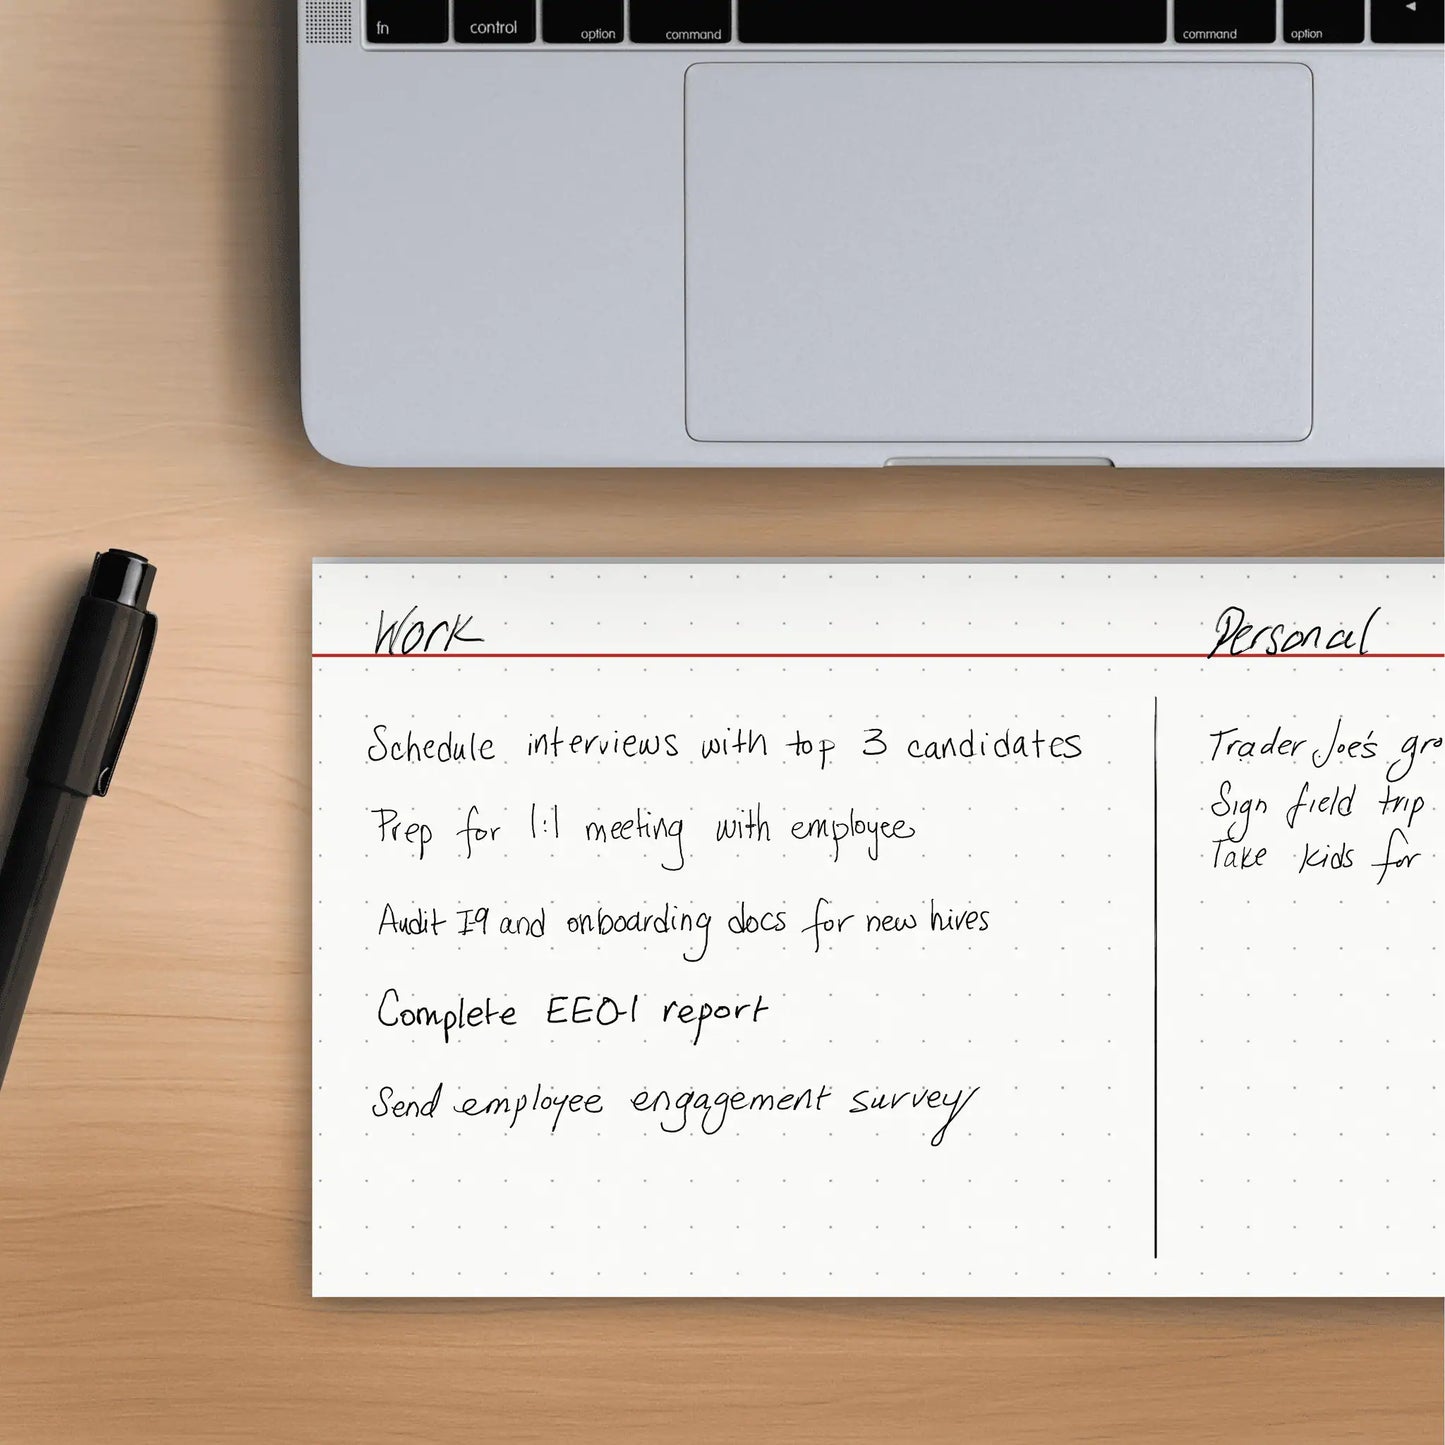 fn control option command command option
Work
Schedule interviews with top 3 candidates
Prep for 1:1 meeting with employee
Audit I-9 and onboarding docs for new hires
Complete EEO-1 report
Send employee engagement survey
Personal
Trader Joe's gro
Sign field trip
Take kids for